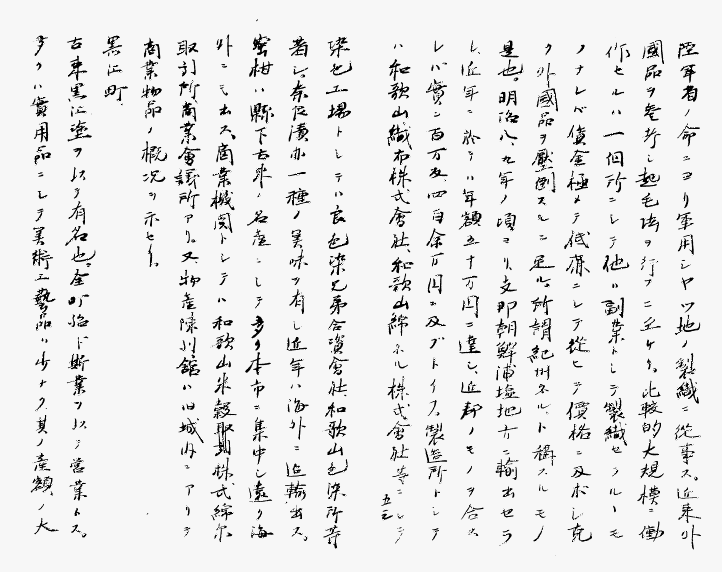 陸軍省ノ命ニヨリ軍用シヤツ地ノ製織ニ從事ス。近来外
國品ヲ參考シ起毛法ヲ行フニ至ケリ。比較的大規模ニ働
作セルハ一個所ニシテ他ハ副業トシテ製織セラルヽモ
ノナレバ賃金極メテ低廉ニシテ從ヒテ價格ニ及ボシ充
ク外國品ヲ壓倒スルニ足ル。所謂紀州ネル、ト稱スルモノ
是也。明治八、九年ノ頃ヨリ、支那朝鮮浦塩地方ニ輸出セラ
レ、近年ニ於テハ年額五十万円ニ達シ、近郡ノモノヲ合ス
レバ實ニ百万及四百余万円ニ及ブトイフ。製造所トシテ
ハ和歌山織布株式會社、和歌山綿ネル株式會社等ニシテ
五三
染色工場トシテハ良色染兄弟合資會社、和歌山色染所等
著シ。奈良漬亦一種ノ美味ヲ有シ近年ハ海外ニ迠輸出ス。
蜜柑ハ縣下古来ノ名産ニシテ多ク本市ニ集中シ遠ク海
外ニモ出ス。商業機関トシテハ和歌山米穀取引株式綿ネル
取引所、商業會議所アリ。又、物産陳列館ハ旧城内ニアリテ
商業物品ノ概況ヲ示セリ。
黒江町
古来黒江塗ヲ以テ有名也。全町殆ド斯業ヲ以テ営業トス。
多クハ實用品ニシテ美術工藝品ハ少ナク、其ノ産額ノ大